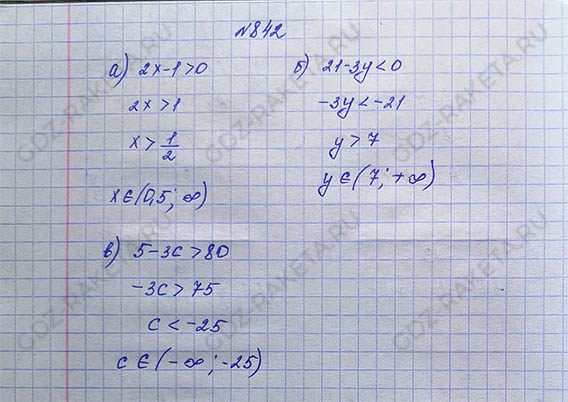 №842
а) 2x-1>0
2x>1
x>1/2
x∈(0,5; ∞)
б) 21-3y<0
-3y<-21
y>7
y∈(7; +∞)
в) 5-3c>80
-3c>75
c<-25
c∈(-∞; -25)
GDZ-RAKETA.RU
GDZ-RAKETA.RU
GDZ-RAKETA.RU
GDZ-RAKETA.RU
GDZ-RAKETA.RU
GDZ-RAKETA.RU